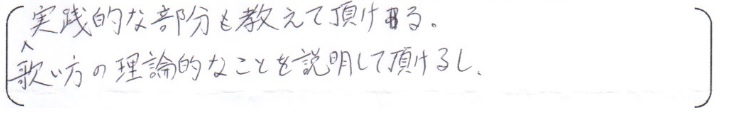 実践的な部分も教えて頂ける。
歌い方の理論的なことを説明して頂けるし、